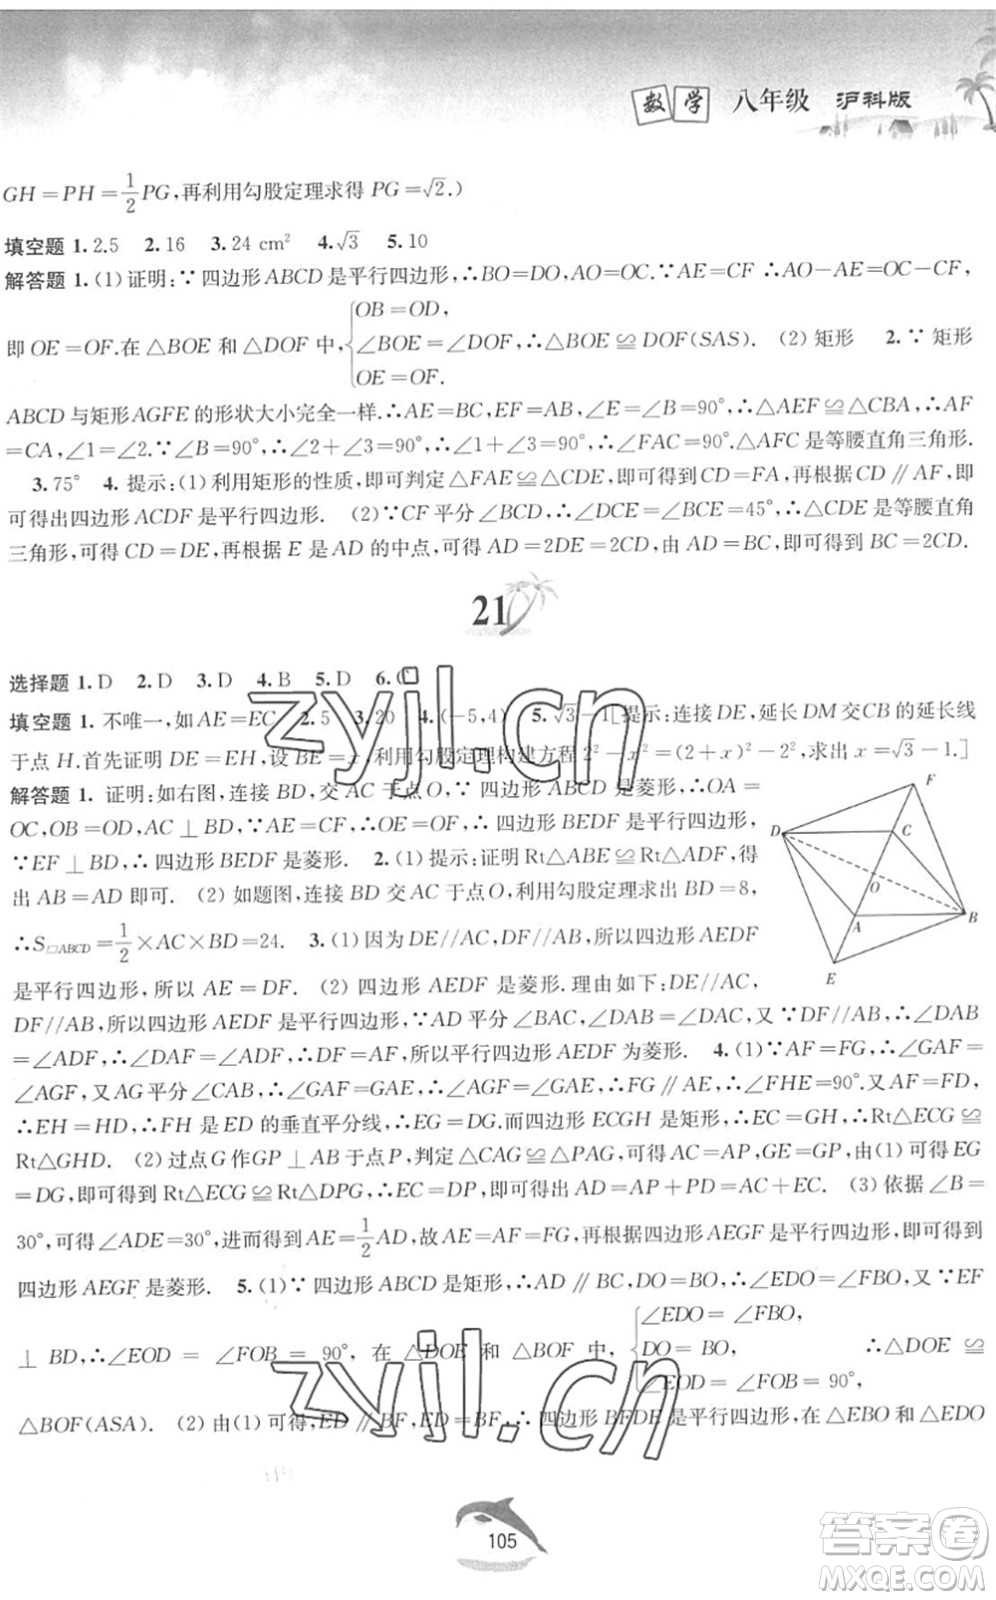 数学 八年级 沪科版
GH=PH=1/2PG,再利用勾股定理求得 PG=√2.)
填空题 1.2.5 2.16 3.24 cm² 4.√3 5.10
解答题 1.(1)证明:∵四边形ABCD是平行四边形,∴BO=DO,AO=OC.∵AE=CF ∴AO-AE=OC-CF,
即OE=OF.在△BOE和△DOF中,{OB=OD, ∠BOE=∠DOF, OE=OF. ∴△BOE≌DOF(SAS). (2)矩形 2.∵矩形
ABCD与矩形AGFE的形状大小完全一样.∴AE=BC,EF=AB,∠E=∠B=90°,∴△AEF≌△CBA,∴AF
=CA,∠1=∠2.∵∠B=90°,∴∠2+∠3=90°,∴∠1+∠3=90°,∴∠FAC=90°.△AFC是等腰直角三角形.
3.75° 4.提示:(1)利用矩形的性质,即可判定△FAE≌△CDE,即可得到CD=FA,再根据CD∥AF,即
可得出四边形ACDF是平行四边形. (2)∵CF平分∠BCD,∴∠DCE=∠BCE=45°,∴△CDE是等腰直角
三角形,可得CD=DE,再根据E是AD的中点,可得AD=2DE=2CD,由AD=BC,即可得到BC=2CD.
21
选择题 1.D 2.D 3.D 4.B 5.D 6.C
填空题 1.不唯一,如AE=EC 2.5 3.20 4.(-5,4) 5.√3-1[提示:连接DE,延长DM交CB的延长线
于点H.首先证明DE=EH,设BE=x,利用勾股定理构建方程2²-x²=(2+x)²-2²,求出x=√3-1.]
解答题 1.证明:如右图,连接BD,交AC于点O,∵四边形ABCD是菱形,∴OA=
OC,OB=OD,AC⊥BD,∵AE=CF,∴OE=OF,∴四边形BEDF是平行四边形,
∵EF⊥BD,∴四边形BEDF是菱形. 2.(1)提示:证明Rt△ABE≌Rt△ADF,得
出AB=AD即可. (2)如题图,连接BD交AC于点O,利用勾股定理求出BD=8,
∴S□ABCD=1/2×AC×BD=24. 3.(1)因为DE//AC,DF//AB,所以四边形AEDF
是平行四边形,所以AE=DF. (2)四边形AEDF是菱形.理由如下:∵DE//AC,
DF//AB,所以四边形AEDF是平行四边形,∵AD平分∠BAC,∠DAB=∠DAC,又∵DF//AB,∴∠DAB
=∠ADF,∴∠DAF=∠ADF,∴DF=AF,所以平行四边形AEDF为菱形. 4.(1)∵AF=FG,∴∠GAF=
∠AGF,又AG平分∠CAB,∴∠GAF=GAE,∴∠AGF=GAE,∴FG∥AE,∴∠FHE=90°.又AF=FD,
∴EH=HD,∴FH是ED的垂直平分线,∴EG=DG.而四边形ECGH是矩形,∴EC=GH,∴Rt△ECG≌
Rt△GHD. (2)过点G作GP⊥AB于点P,判定△CAG≌△PAG,可得AC=AP,GE=GP,由(1)可得EG
=DG,即可得到Rt△ECG≌Rt△DPG,∴EC=DP,即可得出AD=AP+PD=AC+EC. (3)依据∠B=
30°,可得∠ADE=30°,进而得到AE=1/2AD,故AE=AF=FG,再根据四边形AEGF是平行四边形,即可得到
四边形AEGF是菱形. 5.(1)∵四边形ABCD是矩形,∴AD∥BC,DO=BO,∴∠EDO=∠FBO,又∵EF
⊥BD,∴∠EOD=∠FOB=90°,在△DOE和△BOF中,{∠EDO=∠FBO, DO=BO, ∠EOD=∠FOB=90°, ∴△DOE≌
△BOF(ASA). (2)由(1)可得,ED∥BF,ED=BF,∴四边形BFDE是平行四边形,在△EBO和△EDO
F
D
C
O
A
B
E
zyjl.cn
zyjl.cn
105
答案卷
MXQE.COM